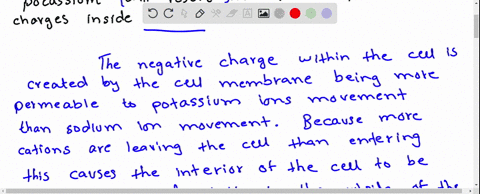 potassium
charges inside
The negative charge within the cell is
created by the cell membrane being more
permeable to potassium ions movement
than sodium ion movement. Because more
cations are leaving the cell than entering
this causes the interior of the cell to be
of the